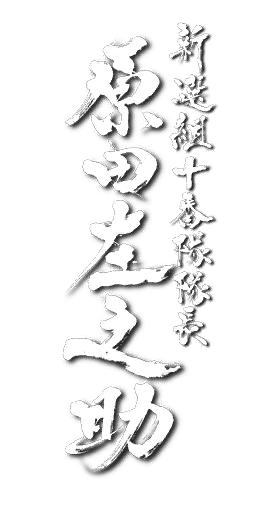 新選組十番隊隊長
原田左之助